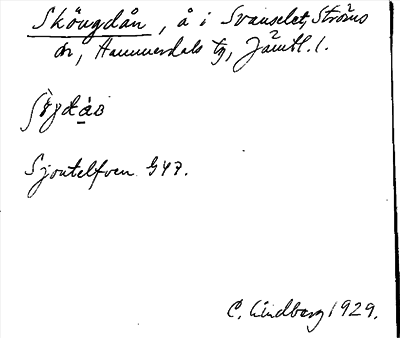 Sköugdån, å i Svanselet, Ströms
sn, Hammerdals tg, Jämtl. l.
Sjoutelfven G47.
C. Lindberg 1929.